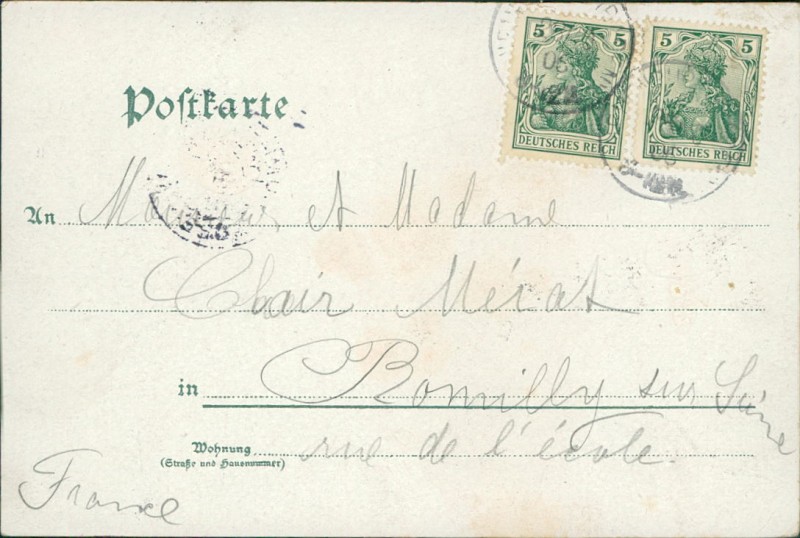 5 5
5 5
DEUTSCHES REICH
DEUTSCHES REICH
Postkarte
An Monsieur et Madame
Clair Mérat
in Romilly sur Seine
Wohnung
(Straße und Hausnummer)
rue de l'école.
France